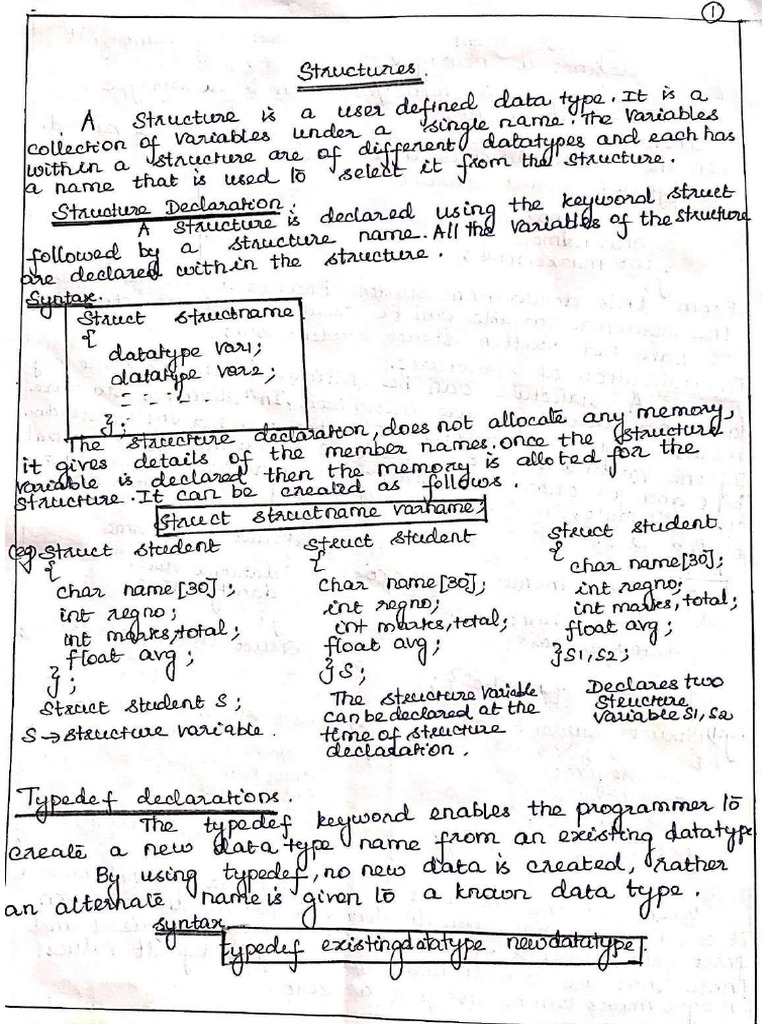 1
Structures.
A Structure is a user defined data type. It is a
collection of variables under a single name. The variables
within a structure are of different datatypes and each has
a name that is used to select it from the structure.
Structure Declaration:
A structure is declared using the keyword struct
followed by a structure name. All the variables of the structure
are declared within the structure.
Syntax.
Struct structname
{
datatype var1;
datatype var2;
- - - -
};
The structure declaration, does not allocate any memory,
it gives details of the member names. once the structure
variable is declared then the memory is alloted for the
structure. It can be created as follows.
Struct structname varname;
(eg) Struct student
{
char name[30];
int regno;
int marks, total;
float avg;
};
Struct student S;
S → structure variable.
Struct student
{
char name[30];
int regno;
int marks, total;
float avg;
}S;
The structure variable
can be declared at the
time of structure
declaration.
Struct student
{
char name[30];
int regno;
int marks, total;
float avg;
}S1, S2;
Declares two
structure
variable S1, S2
Typedef declarations.
The typedef keyword enables the programmer to
create a new data type name from an existing datatype
By using typedef, no new data is created, rather
an alternate name is given to a known data type.
syntax
typedef existingdatatype newdatatype.